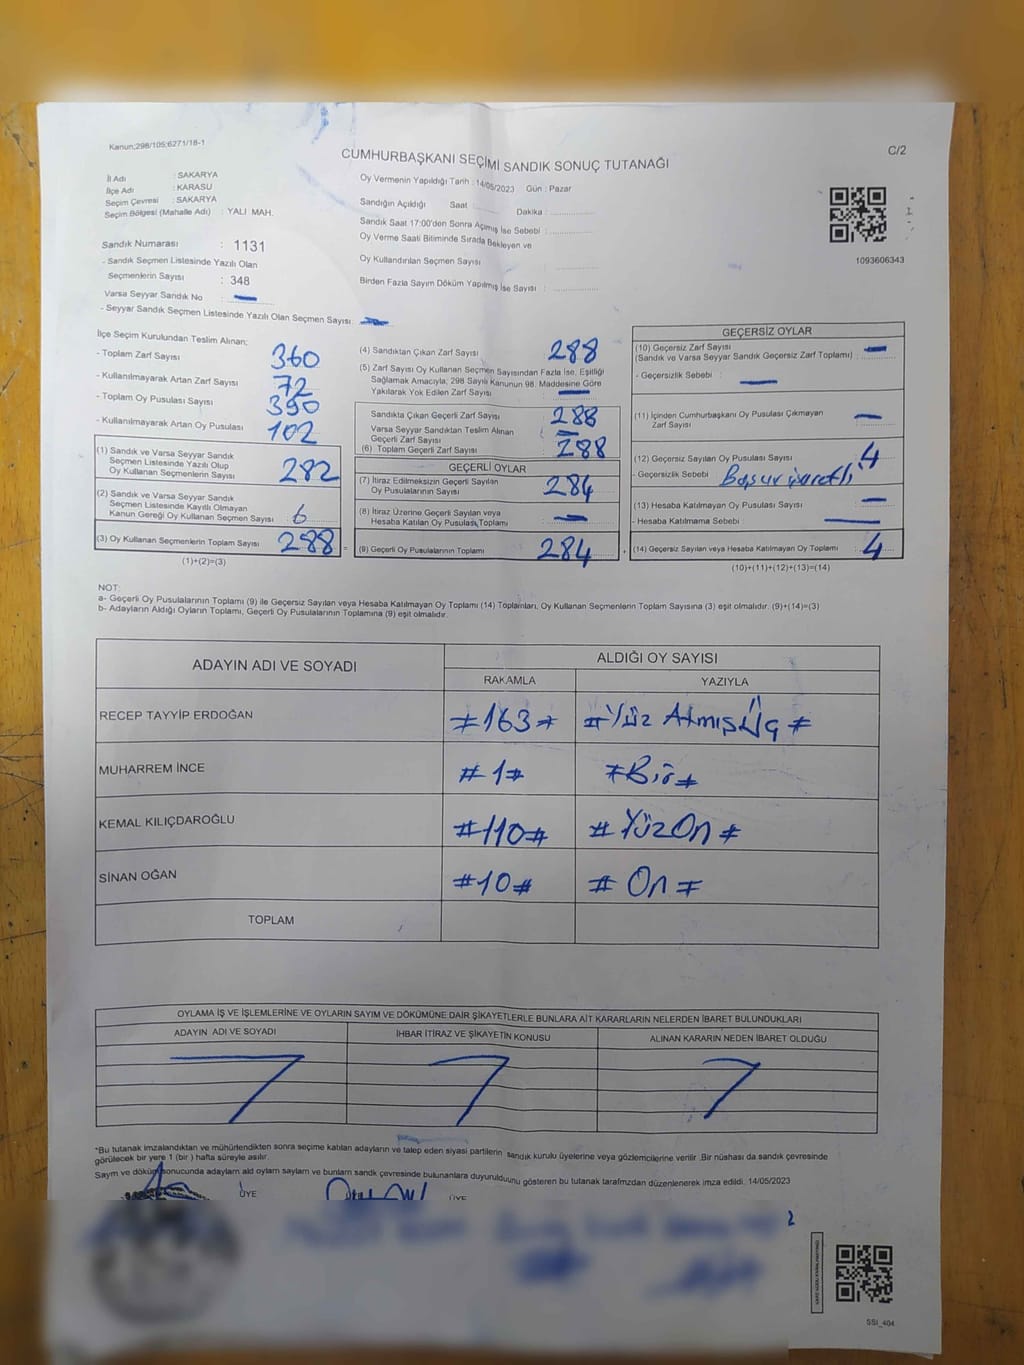 Kanun;298/105;6271/18-1
C/2
CUMHURBAŞKANI SEÇİMİ SANDIK SONUÇ TUTANAĞI
İl Adı : SAKARYA
İlçe Adı : KARASU
Seçim Çevresi : SAKARYA
Seçim Bölgesi (Mahalle Adı) : YALI MAH.
Sandık Numarası : 1131
- Sandık Seçmen Listesinde Yazılı Olan
Seçmenlerin Sayısı : 348
Varsa Seyyar Sandık No :
- Seyyar Sandık Seçmen Listesinde Yazılı Olan Seçmen Sayısı:
Oy Vermenin Yapıldığı Tarih : 14/05/2023 Gün : Pazar
Sandığın Açıldığı Saat : Dakika :
Sandık Saat 17:00'den Sonra Açımış İse Sebebi :
Oy Verme Saati Bitiminde Sırada Bekleyen ve
Oy Kullandırılan Seçmen Sayısı :
Birden Fazla Sayım Döküm Yapılmış İse Sayısı :
1093606343
İlçe Seçim Kurulundan Teslim Alınan;
- Toplam Zarf Sayısı 360
- Kullanılmayarak Artan Zarf Sayısı 72
- Toplam Oy Pusulası Sayısı 390
- Kullanılmayarak Artan Oy Pusulası 102
(1) Sandık ve Varsa Seyyar Sandık
Seçmen Listesinde Yazılı Olup
Oy Kullanan Seçmenlerin Sayısı 282
(2) Sandık ve Varsa Seyyar Sandık
Seçmen Listesinde Kayıtlı Olmayan
Kanun Gereği Oy Kullanan Seçmen Sayısı 6
(3) Oy Kullanan Seçmenlerin Toplam Sayısı 288
(1)+(2)=(3)
(4) Sandıktan Çıkan Zarf Sayısı : 288
(5) Zarf Sayısı Oy Kullanan Seçmen Sayısından Fazla İse, Eşitliği
Sağlamak Amacıyla, 298 Sayılı Kanunun 98. Maddesine Göre
Yakılarak Yok Edilen Zarf Sayısı :
Sandıkta Çıkan Geçerli Zarf Sayısı : 288
Varsa Seyyar Sandıktan Teslim Alınan
Geçerli Zarf Sayısı
(6) Toplam Geçerli Zarf Sayısı : 288
GEÇERLİ OYLAR
(7) İtiraz Edilmeksizin Geçerli Sayılan
Oy Pusulalarının Sayısı : 284
(8) İtiraz Üzerine Geçerli Sayılan veya
Hesaba Katılan Oy Pusulası Toplamı :
=
(9) Geçerli Oy Pusulalarının Toplamı : 284
+
GEÇERSİZ OYLAR
(10) Geçersiz Zarf Sayısı
(Sandık ve Varsa Seyyar Sandık Geçersiz Zarf Toplamı) :
- Geçersizlik Sebebi :
(11) İçinden Cumhurbaşkanı Oy Pusulası Çıkmayan
Zarf Sayısı :
(12) Geçersiz Sayılan Oy Pusulası Sayısı : 4
- Geçersizlik Sebebi :
(13) Hesaba Katılmayan Oy Pusulası Sayısı :
- Hesaba Katılmama Sebebi :
(14) Geçersiz Sayılan veya Hesaba Katılmayan Oy Toplamı : 4
(10)+(11)+(12)+(13)=(14)
NOT:
a- Geçerli Oy Pusulalarının Toplamı (9) ile Geçersiz Sayılan veya Hesaba Katılmayan Oy Toplamı (14) Toplamları, Oy Kullanan Seçmenlerin Toplam Sayısına (3) eşit olmalıdır. (9)+(14)=(3)
b- Adayların Aldığı Oyların Toplamı, Geçerli Oy Pusulalarının Toplamına (9) eşit olmalıdır.
ADAYIN ADI VE SOYADI ALDIĞI OY SAYISI
RAKAMLA YAZIYLA
RECEP TAYYİP ERDOĞAN #163# #Yüz AtmışÜç#
MUHARREM İNCE #1# #Bir#
KEMAL KILIÇDAROĞLU #110# #YüzOn#
SİNAN OĞAN #10# #On#
TOPLAM
OYLAMA İŞ VE İŞLEMLERİNE VE OYLARIN SAYIM VE DÖKÜMÜNE DAİR ŞİKAYETLERLE BUNLARA AİT KARARLARIN NELERDEN İBARET BULUNDUKLARI
ADAYIN ADI VE SOYADI İHBAR İTİRAZ VE ŞİKAYETİN KONUSU ALINAN KARARIN NEDEN İBARET OLDUĞU
*Bu tutanak imzalandıktan ve mühürlendikten sonra seçime katılan adayların ve talep eden siyasi partilerin sandık kurulu üyelerine veya gözlemcilerine verilir .Bir nüshası da sandık çevresinde
görülecek bir yere 1 (bir ) hafta süreyle asılır.
Sayım ve döküm sonucunda adayların ald oyların sayları ve bunların sandık çevresinde bulunanlara duyurulduunu gösteren bu tutanak tarafmzdan düzenlenerek imza edildi. 14/05/2023
ÜYE ÜYE
2
SSI_404